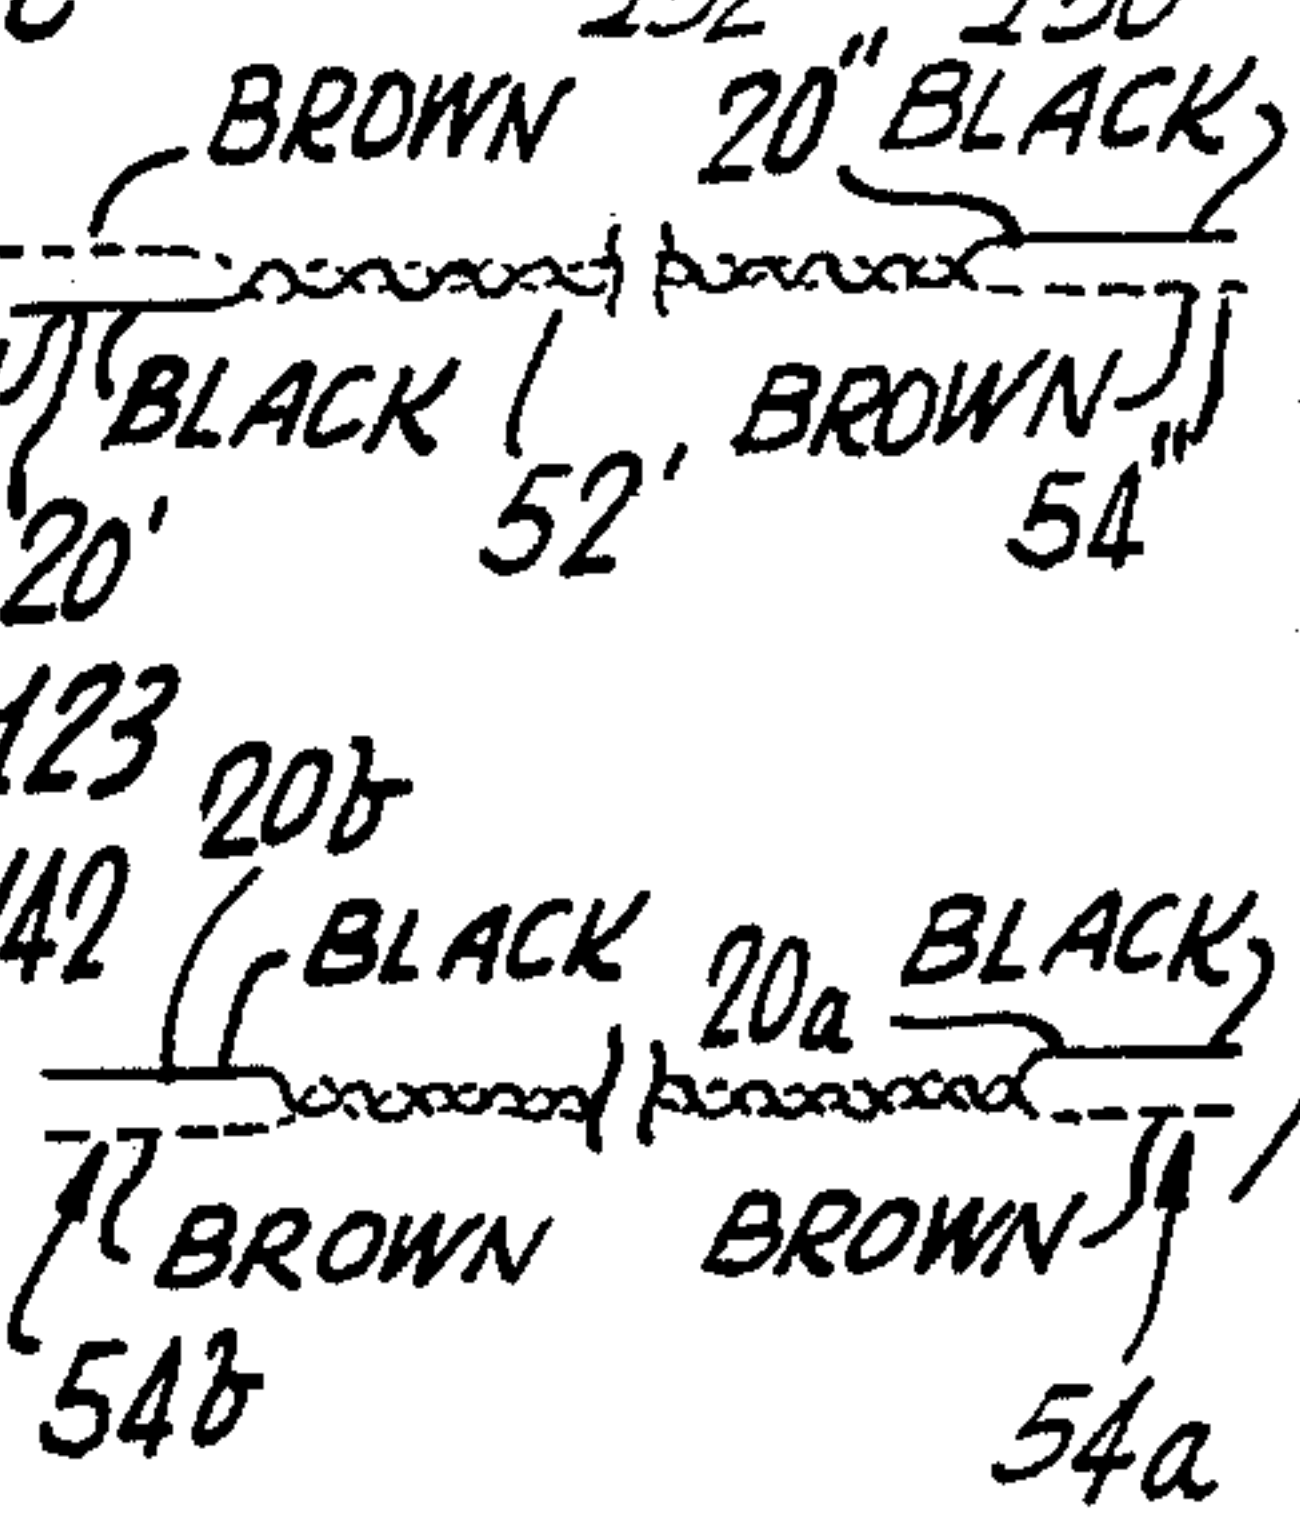 BROWN 20" BLACK
BLACK 52' BROWN 54"
20'
123
20b
42 BLACK 20a BLACK
BROWN BROWN
54b 54a